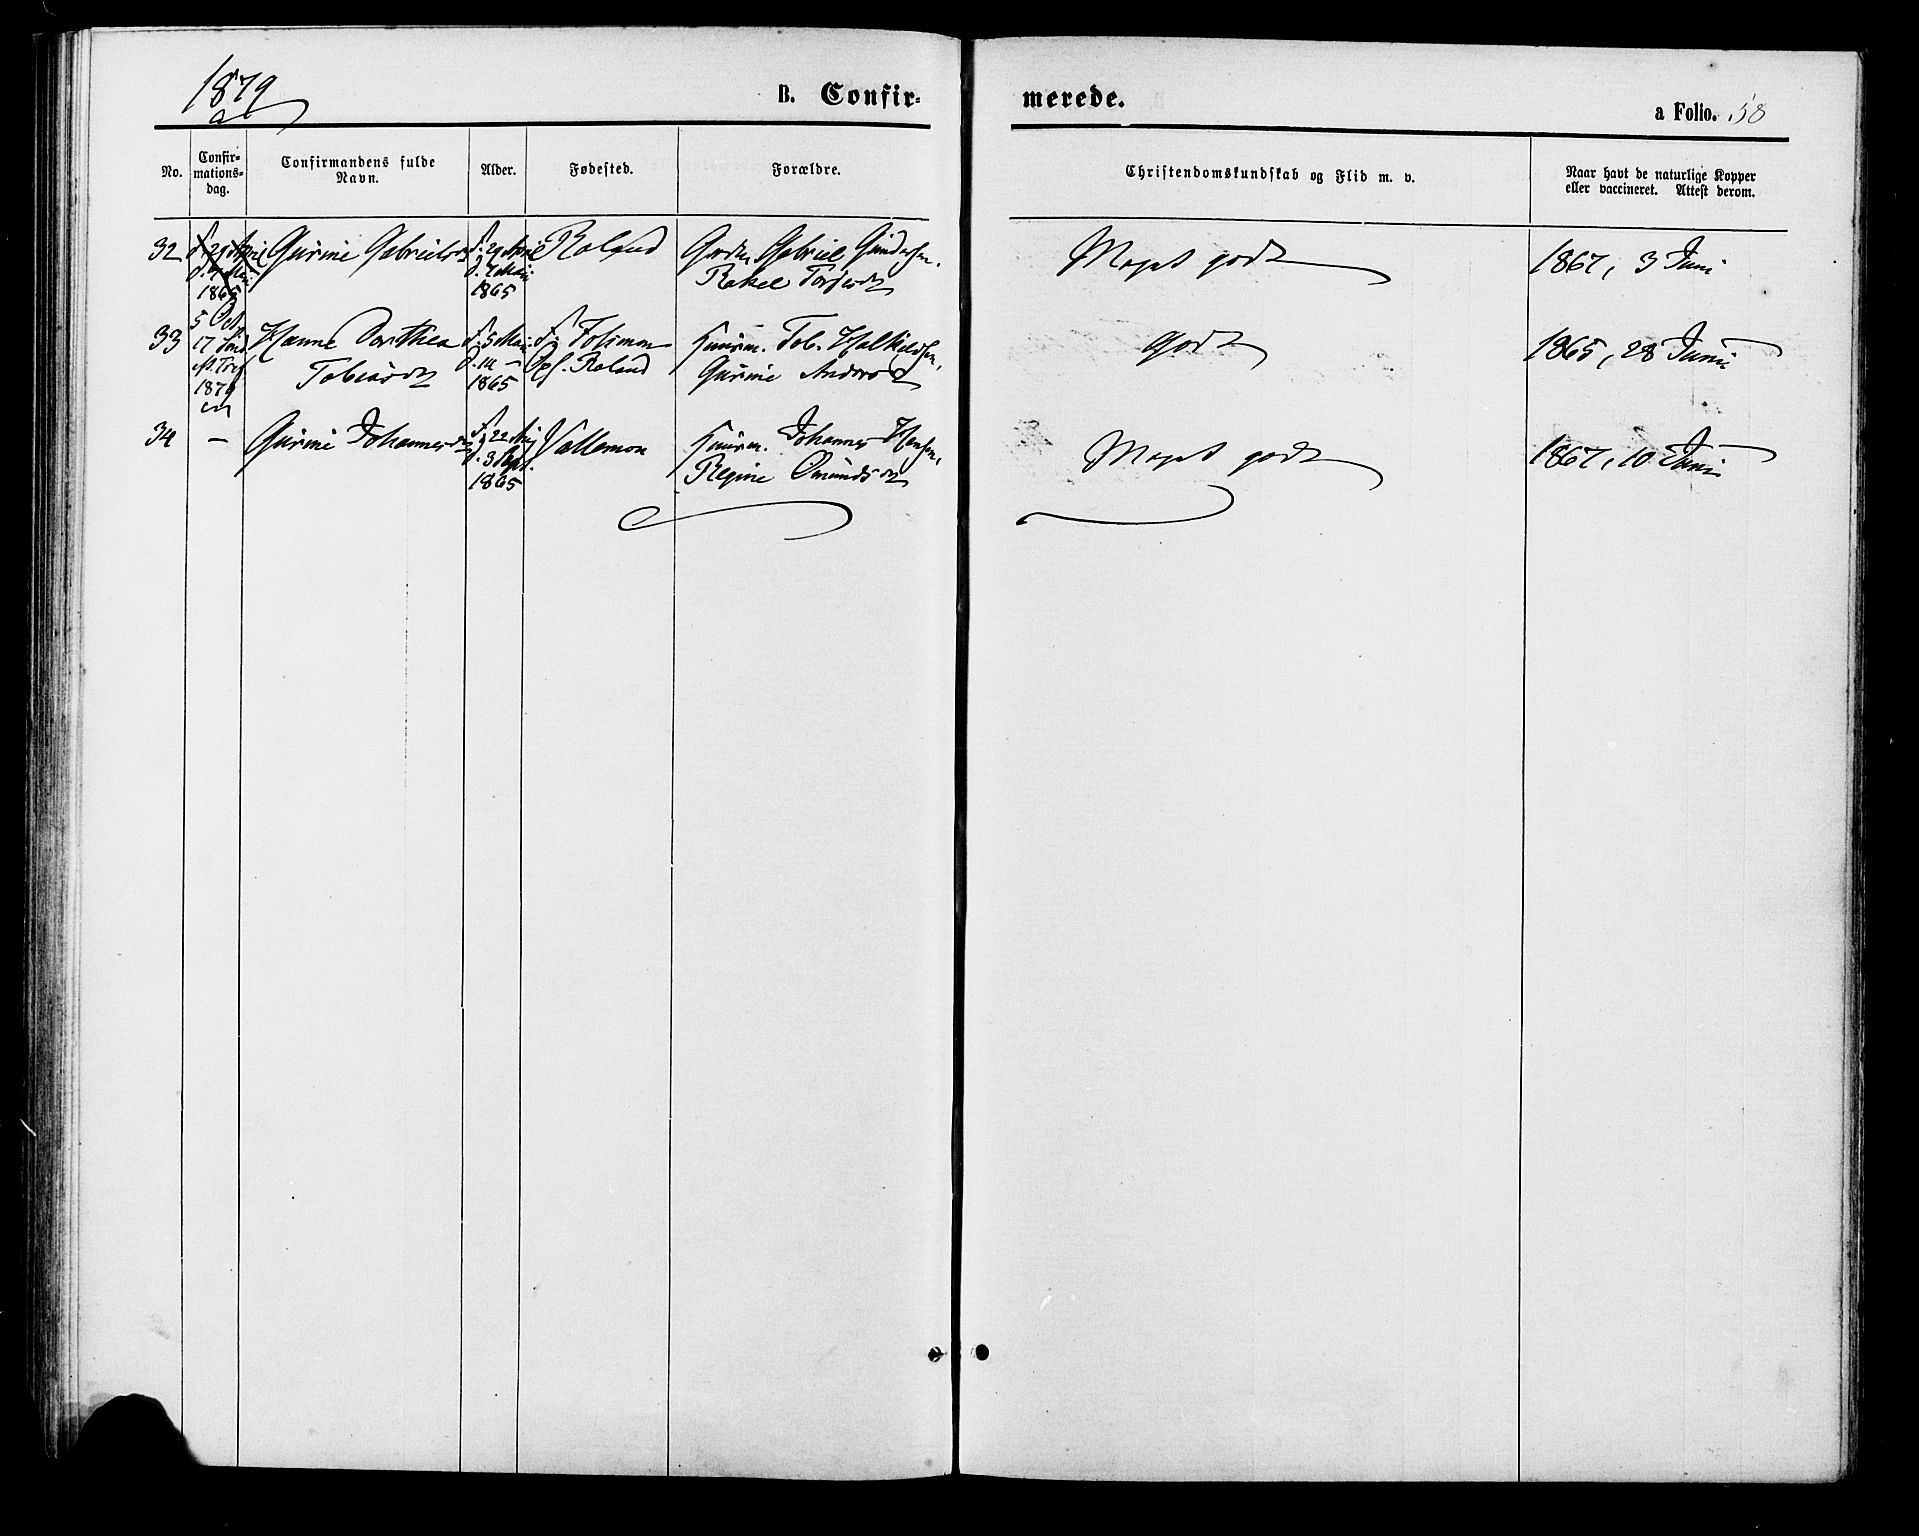 1879
B. Confir-
merede.
a Folio. 58
No.
Confir-
mations-
dag.
Confirmandens fulde
Navn.
Alder.
Fødested.
Forældre.
Christendomskundskab og Flid m. v.
Naar havt de naturlige Kopper
eller vaccineret. Attest derom.
32
f. 29 April
1865
Gurine Gabrielsd
f. 29 April
d. 7 Mai
1865
Roland
Gabriel Gundersen,
Rakel
Meget godt
1867, 3 Juni
33
5 Oct.
17 Sønd.
e. Tref.
1879
Hanne Dorthea
Tobiasd
f. 5 Mai
d. 14 –
1865
f.
Roland
Huusm. Tob. Halkildsen,
Gurine Andersd
Godt
1865, 28 Juni
34
–
Gurine Johannesd
f. 22 Aug
d. 3 Sept.
1865
Vallemon
Huusm. Johannes Hansen,
Regine Omundsd
Meget godt
1867, 10 Juni